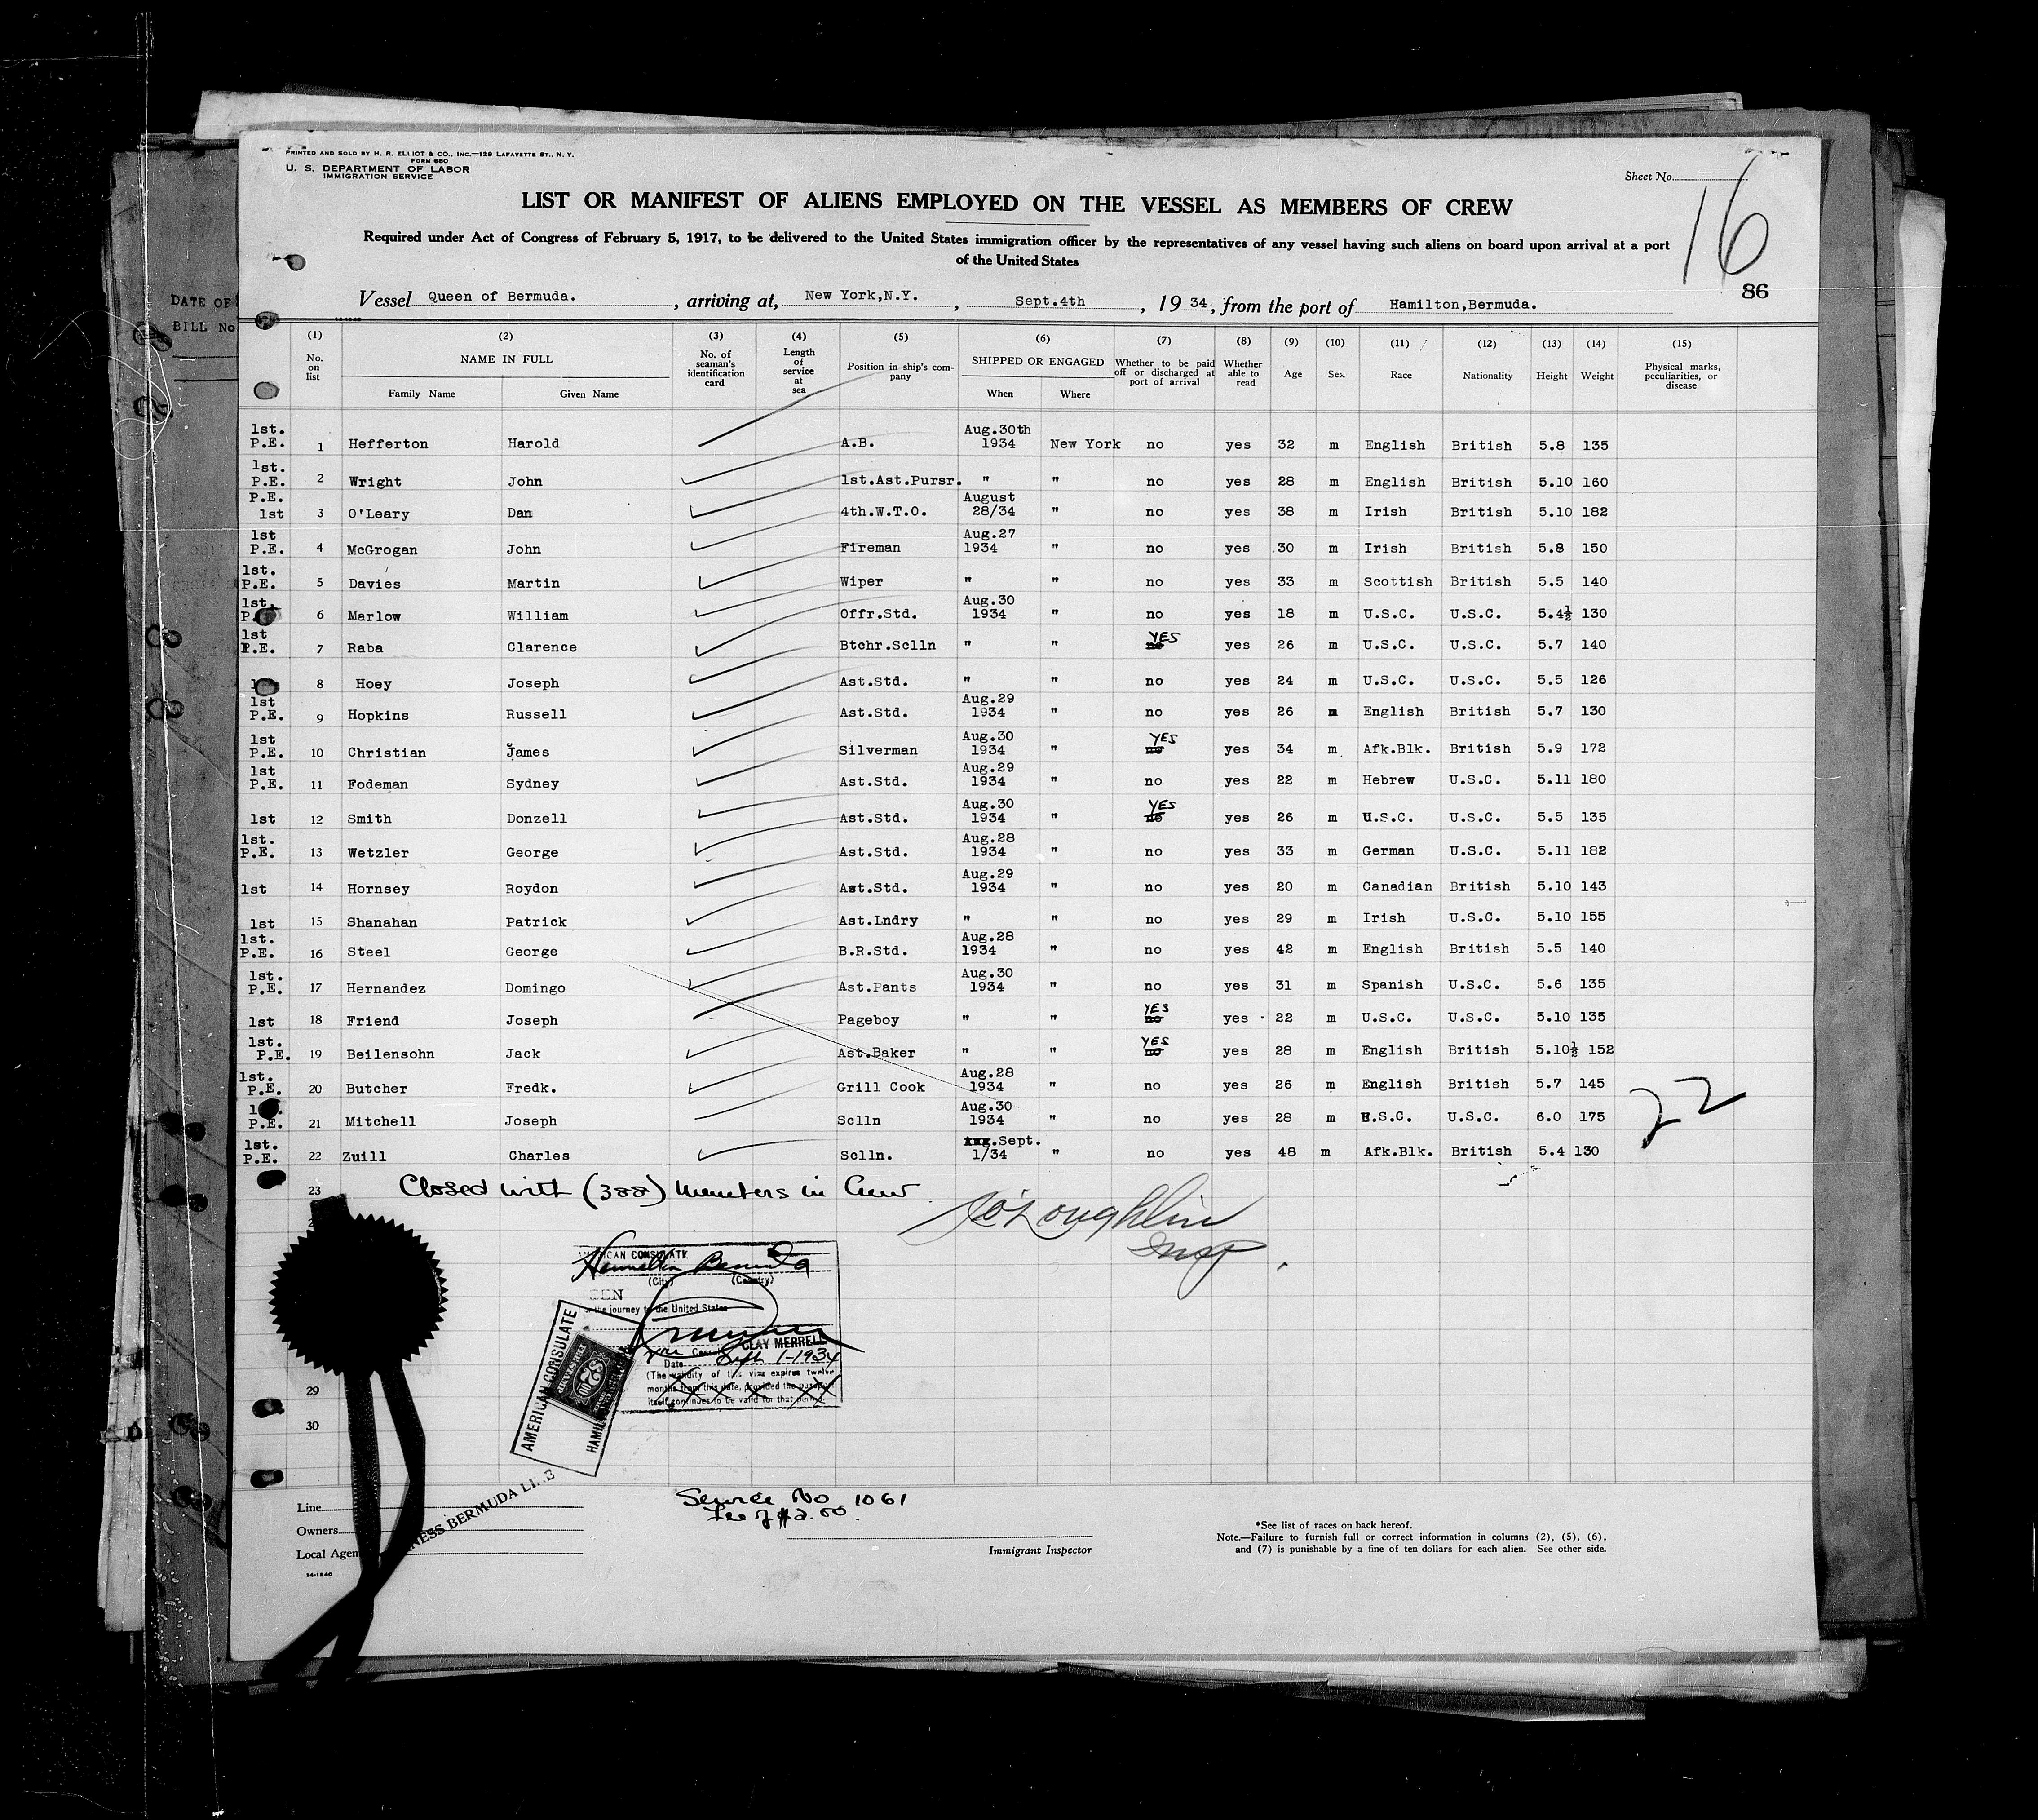 PRINTED AND SOLD BY H. R. ELLIOT & CO., INC.—129 LAFAYETTE ST., N. Y.
FORM 680
U. S. DEPARTMENT OF LABOR
IMMIGRATION SERVICE
Sheet No.
16
LIST OR MANIFEST OF ALIENS EMPLOYED ON THE VESSEL AS MEMBERS OF CREW
Required under Act of Congress of February 5, 1917, to be delivered to the United States immigration officer by the representatives of any vessel having such aliens on board upon arrival at a port
of the United States
86
DATE OF
BILL No
Vessel Queen of Bermuda. , arriving at, New York,N.Y. , Sept.4th , 19 34, from the port of Hamilton,Bermuda.
14-1240
(1) (2) (3) (4) (5) (6) (7) (8) (9) (10) (11) (12) (13) (14) (15)
No. on list NAME IN FULL Family Name Given Name No. of seaman's identification card Length of service at sea Position in ship's company SHIPPED OR ENGAGED When Where Whether to be paid off or discharged at port of arrival Whether able to read Age Sex Race Nationality Height Weight Physical marks, peculiarities, or disease
1st. P.E. 1 Hefferton Harold A.B. Aug.30th 1934 New York no yes 32 m English British 5.8 135
1st. P.E. 2 Wright John 1st.Ast.Pursr. " " no yes 28 m English British 5.10 160
P.E. 1st 3 O'Leary Dan 4th.W.T.O. August 28/34 " no yes 38 m Irish British 5.10 182
1st P.E. 4 McGrogan John Fireman Aug.27 1934 " no yes 30 m Irish British 5.8 150
1st. P.E. 5 Davies Martin Wiper " " no yes 33 m Scottish British 5.5 140
1st. P. 6 Marlow William Offr.Std. Aug.30 1934 " no yes 18 m U.S.C. U.S.C. 5.4½ 130
1st P.E. 7 Raba Clarence Btchr.Sclln " " YES no yes 26 m U.S.C. U.S.C. 5.7 140
8 Hoey Joseph Ast.Std. " " no yes 24 m U.S.C. U.S.C. 5.5 126
1st P.E. 9 Hopkins Russell Ast.Std. Aug.29 1934 " no yes 26 m English British 5.7 130
1st P.E. 10 Christian James Silverman Aug.30 1934 " YES no yes 34 m Afk.Blk. British 5.9 172
1st P.E. 11 Fodeman Sydney Ast.Std. Aug.29 1934 " no yes 22 m Hebrew U.S.C. 5.11 180
1st 12 Smith Donzell Ast.Std. Aug.30 1934 " YES no yes 26 m U.S.C. U.S.C. 5.5 135
1st. P.E. 13 Wetzler George Ast.Std. Aug.28 1934 " no yes 33 m German U.S.C. 5.11 182
1st 14 Hornsey Roydon Ast.Std. Aug.29 1934 " no yes 20 m Canadian British 5.10 143
1st 15 Shanahan Patrick Ast.Lndry " " no yes 29 m Irish U.S.C. 5.10 155
1st. P.E. 16 Steel George B.R.Std. Aug.28 1934 " no yes 42 m English British 5.5 140
1st. P.E. 17 Hernandez Domingo Ast.Pants Aug.30 1934 " no yes 31 m Spanish U.S.C. 5.6 135
1st 18 Friend Joseph Pageboy " " YES no yes 22 m U.S.C. U.S.C. 5.10 135
1st. P.E. 19 Beilensohn Jack Ast.Baker " " YES no yes 28 m English British 5.10½ 152
1st. P.E. 20 Butcher Fredk. Grill Cook Aug.28 1934 " no yes 26 m English British 5.7 145
P.E. 21 Mitchell Joseph Sclln Aug.30 1934 " no yes 28 m U.S.C. U.S.C. 6.0 175
1st. P.E. 22 Zuill Charles Sclln. Aug.Sept. 1/34 " no yes 48 m Afk.Blk. British 5.4 130
22
23 Closed with (388) members in Crew
O'Loughlin
Insp.
AMERICAN CONSULATE
Hamilton Bermuda
(City) (Country)
SEEN
the journey to the United States
CLAY MERRELL
Date Sept 1-1934
(The validity of this visa expires twelve
months from this date, provided the passport
itself continues to be valid for that period.
AMERICAN CONSULATE
29
30
Line
Owners
Local Agen
NESS BERMUDA LINE
14-1240
Service No 1061
Fee of $2.00.
Immigrant Inspector
*See list of races on back hereof.
Note.—Failure to furnish full or correct information in columns (2), (5), (6),
and (7) is punishable by a fine of ten dollars for each alien. See other side.